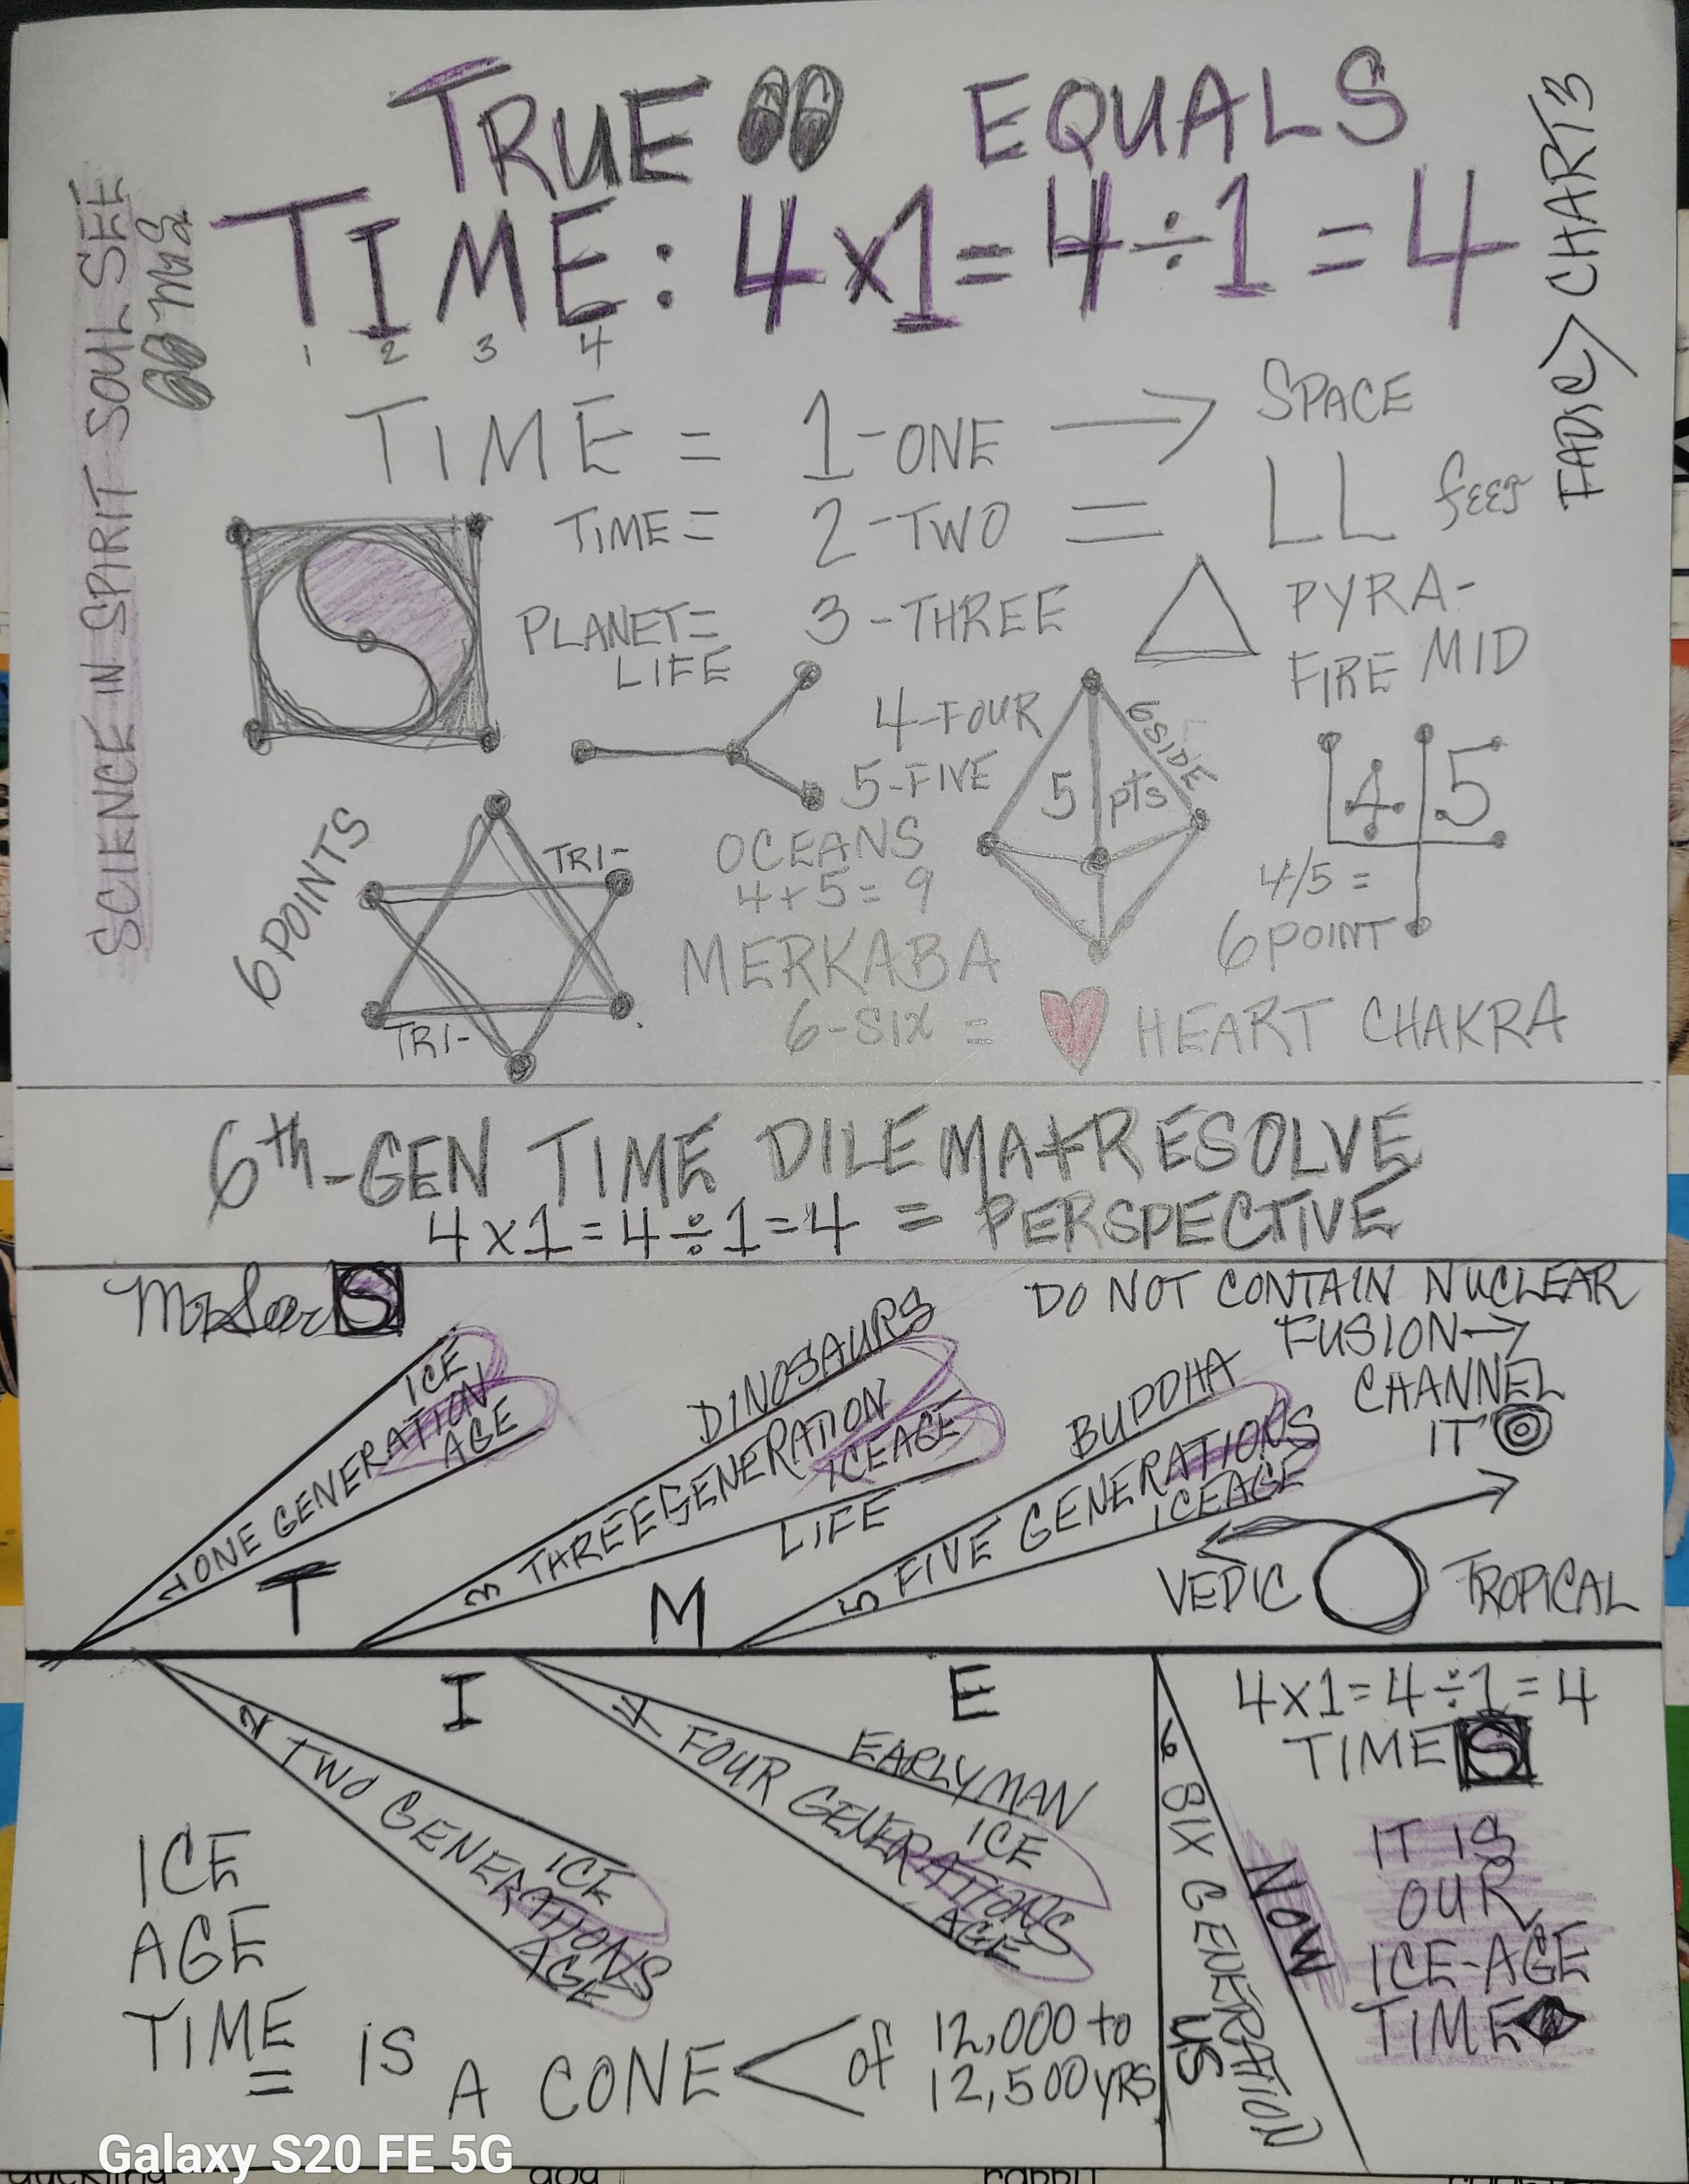 TRUE EQUALS
TIME: 4x1=4÷1=4
1 2 3 4
SCIENCE IN SPIRIT SOUL SEE
FADIC> CHART3
TIME = 1-ONE → SPACE
TIME = 2-TWO = LL feet
PLANET= 3-THREE PYRA-
LIFE FIRE MID
4-FOUR
5-FIVE
5 pts
6 SIDE
4 5
4/5 =
6 POINT
OCEANS
4+5=9
6 POINTS
TRI-
TRI-
MERKABA
6-SIX = HEART CHAKRA
6th-GEN TIME DILEMA+RESOLVE
4x1=4÷1=4 = PERSPECTIVE
DO NOT CONTAIN NUCLEAR
FUSION→
CHANNEL
IT
1 ONE GENERATION
ICE
AGE
T
DINOSAURS
3 THREE GENERATION
ICE AGE
LIFE
M
BUDDHA
5 FIVE GENERATIONS
ICE AGE
VEDIC
TROPICAL
I
2 TWO GENERATIONS
ICE
AGE
E
4 FOUR GENERATIONS
EARLY MAN
ICE
AGE
6 SIX GENERATION
US
NOW
4x1=4÷1=4
TIME S
IT IS
OUR
ICE-AGE
TIME
ICE
AGE
TIME IS A CONE < of 12,000 to
12,500 YRS
Galaxy S20 FE 5G
dog
rabbit